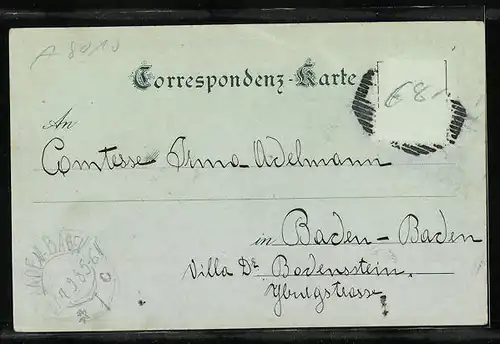 A 8010
Correspondenz-Karte
€ 8.-
An
Comtesse Irma Adelmann
in Baden-Baden
Villa Dr. Bodensstein.
BADEN-BADEN